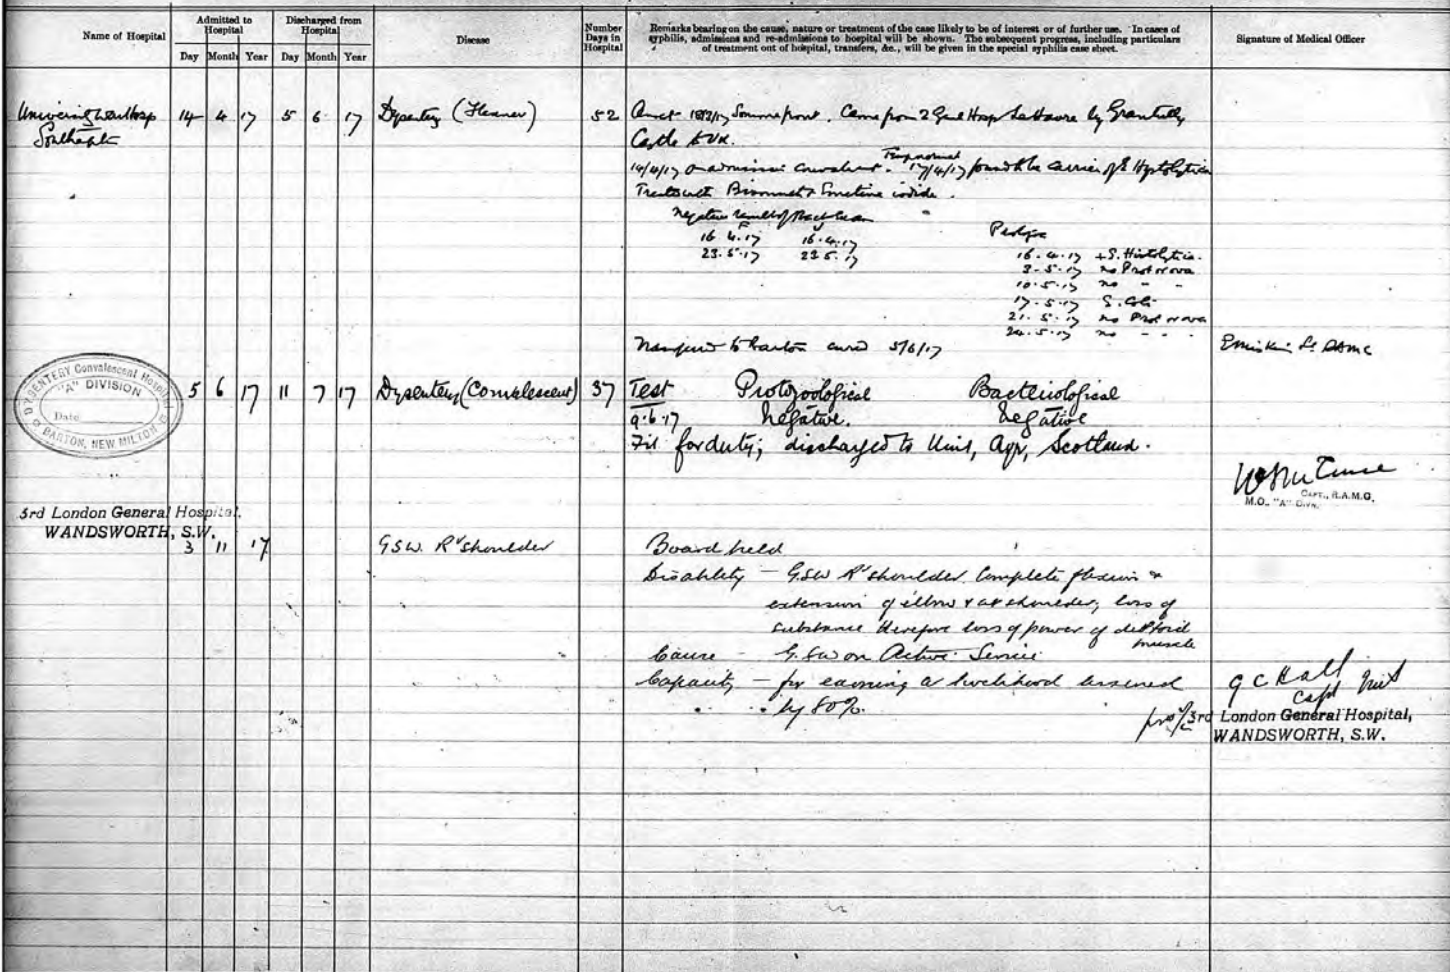 Name of Hospital
Admitted to Hospital
Discharged from Hospital
Disease
Number Days in Hospital
Remarks bearing on the cause, nature or treatment of the case likely to be of interest or of further use. In cases of
syphilis, admissions and re-admissions to hospital will be shown. The subsequent progress, including particulars
of treatment out of hospital, transfers, &c., will be given in the special syphilis case sheet.
Signature of Medical Officer
Day Month Year Day Month Year
University War Hosp 14 4 17 5 6 17 Dysentery 52 Somme front. Came from 2 Genl Hosp Le Havre by Grantully
Castle to UK.
14/4/17 on admission 17/4/17 found to be carrier of E Hystolytica
Treated with Bismuth & Emetine iodide.
Negative result of
16.4.17 16.4.17
23.5.17 23.5.17
16.4.17 + E. Histolytica.
3.5.17 no Prot or ova
10.5.17 no - -
17.5.17 E. Coli
21.5.17 no Prot or ova
24.5.17 no - - -
Transferred to Barton cured 5/6/17
DYSENTERY Convalescent Hospital
"A" DIVISION
Date
BARTON, NEW MILTON
5 6 17 11 7 17 Dysentery (Convalescent) 37 Test Protozoological Bacteriological
9.6.17 Negative. Negative
Fit for duty; discharged to Unit, Ayr, Scotland.
CAPT., R.A.M.C.
M.O., "A" DIVN.
3rd London General Hospital,
WANDSWORTH, S.W.
3 11 17 GSW. Rt shoulder Board held
Disability - GSW Rt shoulder Complete flexion &
extension of elbow & at shoulder; loss of
substance therefore loss of power of deltoid
muscle
Cause - G.SW on Active Service
Capacity - for earning a livelihood lessened
" " " by 80%.
G C Hall
Capt
3rd London General Hospital,
WANDSWORTH, S.W.